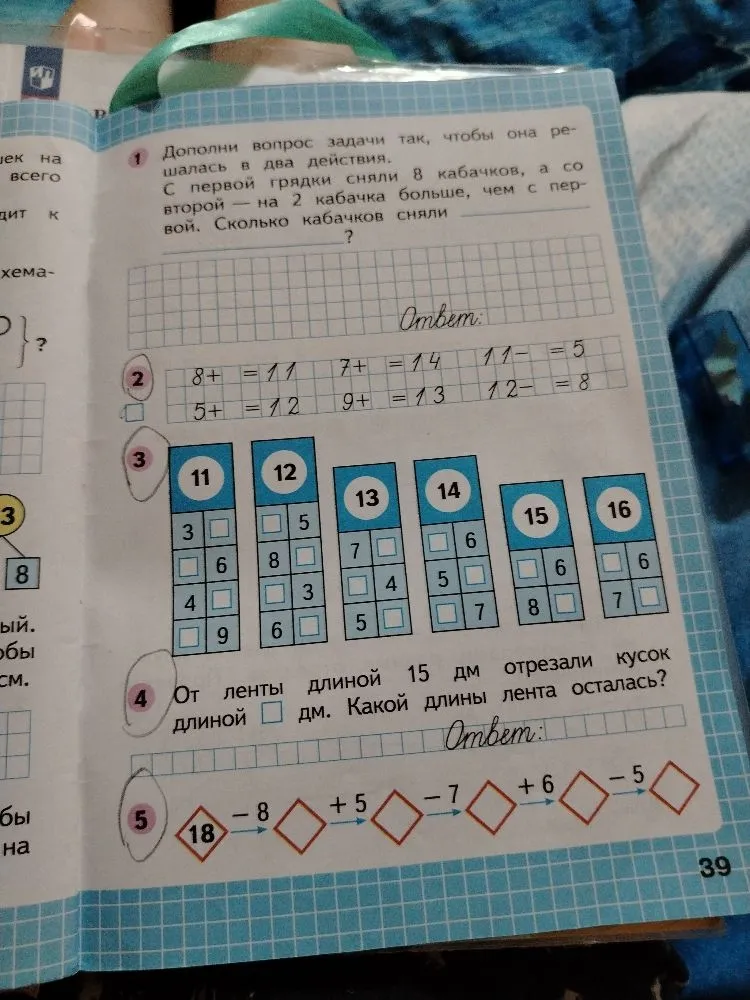 шек на
всего
дит к
хема-
?
3
8
ый.
обы
см.
бы
на
1 Дополни вопрос задачи так, чтобы она ре-
шалась в два действия.
С первой грядки сняли 8 кабачков, а со
второй — на 2 кабачка больше, чем с пер-
вой. Сколько кабачков сняли
?
Ответ:
2 8+ =11 7+ =14 11− =5
5+ =12 9+ =13 12− =8
3 11 12 13 14 15 16
3 5 7 6 6 6
6 8 4 5 8 7
4 3 5 7
9 6
4 От ленты длиной 15 дм отрезали кусок
длиной □ дм. Какой длины лента осталась?
Ответ:
5 18 − 8 + 5 − 7 + 6 − 5
39